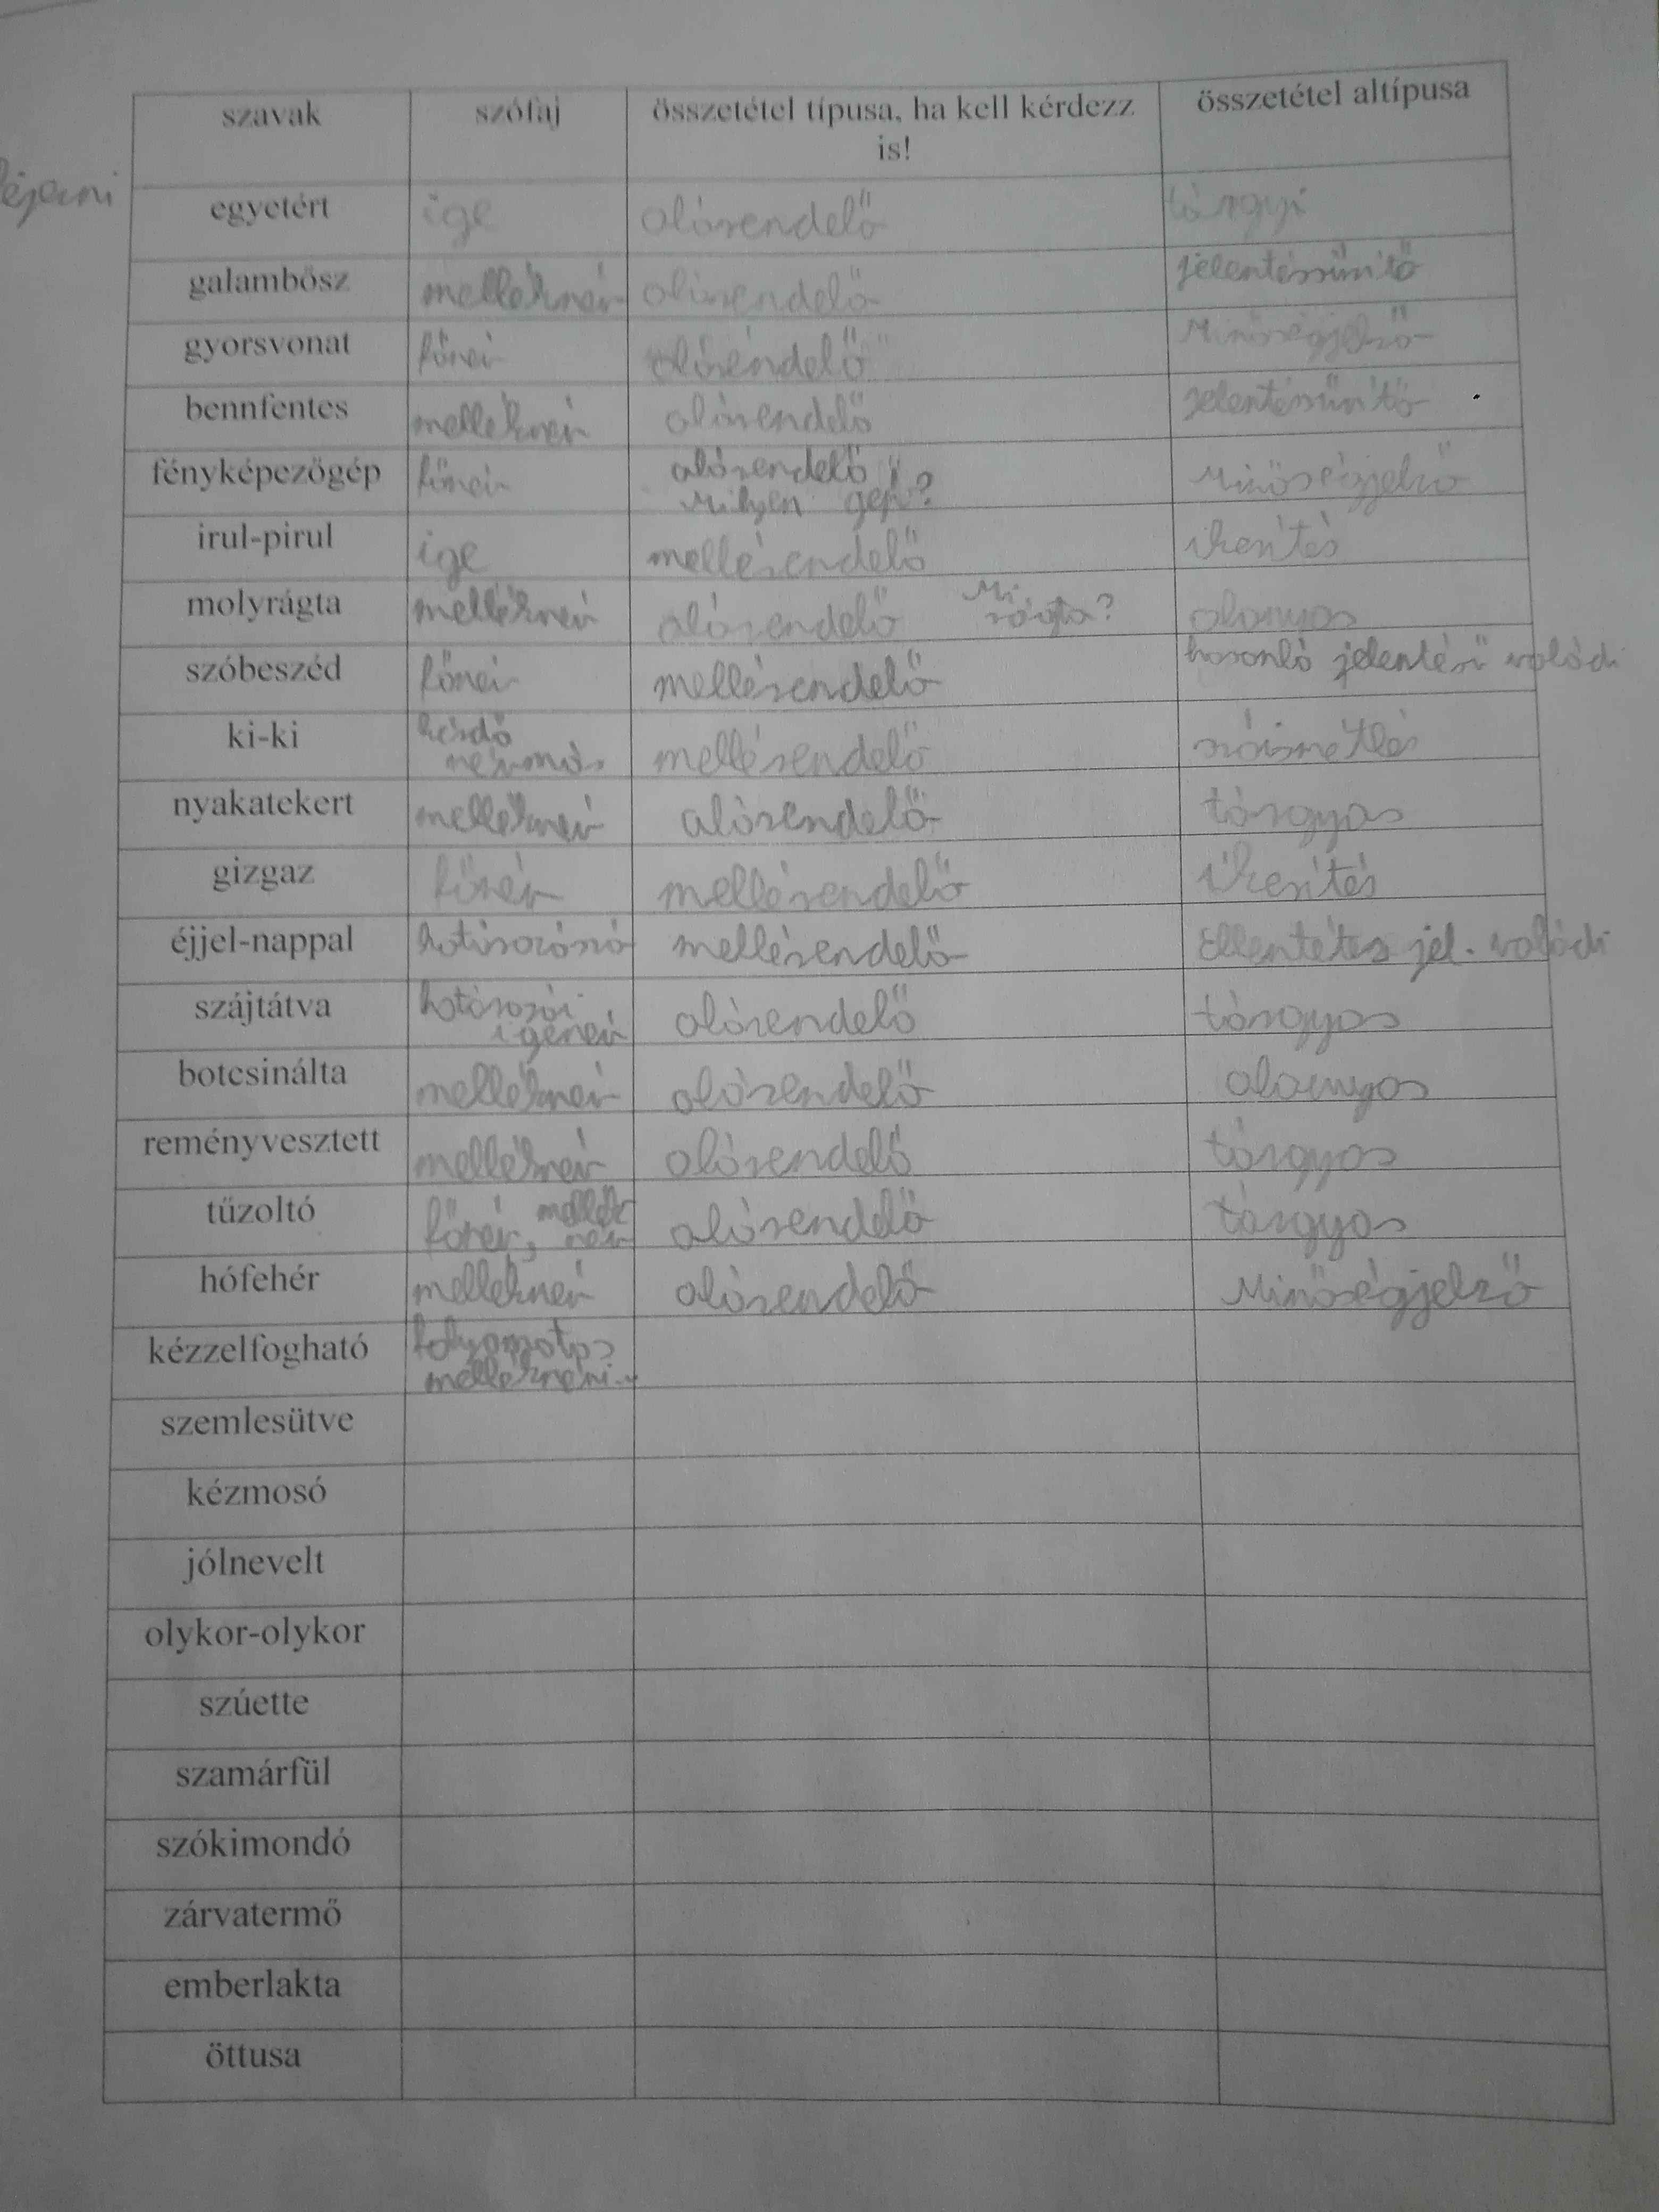 szavak szófaj összetétel típusa, ha kell kérdezz összetétel altípusa
is!
egyetért ige alárendelő tárgyi
galambősz melléknév alárendelő jelentéssűrítő
gyorsvonat főnév alárendelő Minőségjelző
bennfentes melléknév alárendelő jelentéssűrítő
fényképezőgép főnév alárendelő Minőségjelző
Milyen gép?
irul-pirul ige mellérendelő ikerítés
molyrágta melléknév alárendelő Mi rágta? alanyos
szóbeszéd főnév mellérendelő hasonló jelentésű valódi
ki-ki kérdő mellérendelő szóismétlés
névmás
nyakatekert melléknév alárendelő tárgyas
gizgaz főnév mellérendelő ikerítés
éjjel-nappal határozószó mellérendelő Ellentétes jel. valódi
szájtátva határozói alárendelő tárgyas
igenév
botcsinálta melléknév alárendelő alanyos
reményvesztett melléknév alárendelő tárgyas
tűzoltó főnév, mellék alárendelő tárgyas
név
hófehér melléknév alárendelő Minőségjelző
kézzelfogható folyamatos
szemlesütve
kézmosó
jólnevelt
olykor-olykor
szúette
szamárfül
szókimondó
zárvatermő
emberlakta
öttusa